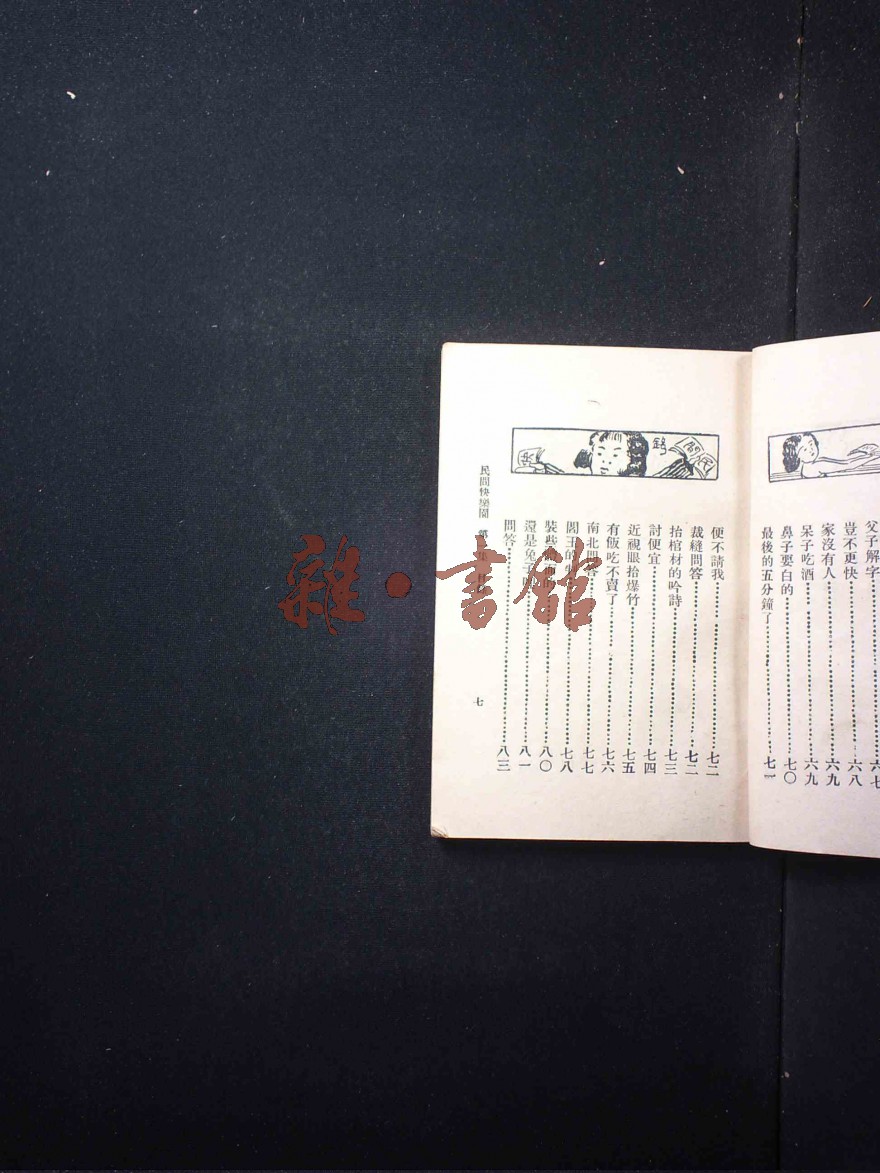 父子解字……六七
豈不更快……六八
家沒有人……六九
呆子吃酒……六九
鼻子要白的……七〇
最後的五分鐘了……七一
便不請我……七二
裁縫問答……七二
抬棺材的吟詩……七三
討便宜……七四
近視眼拾爆竹……七五
有飯吃不賣了……七六
南北問答……七七
閻王的……七八
裝些……八〇
還是兔子……八一
問答……八三
民間快樂園 第 集
七
雜·書館